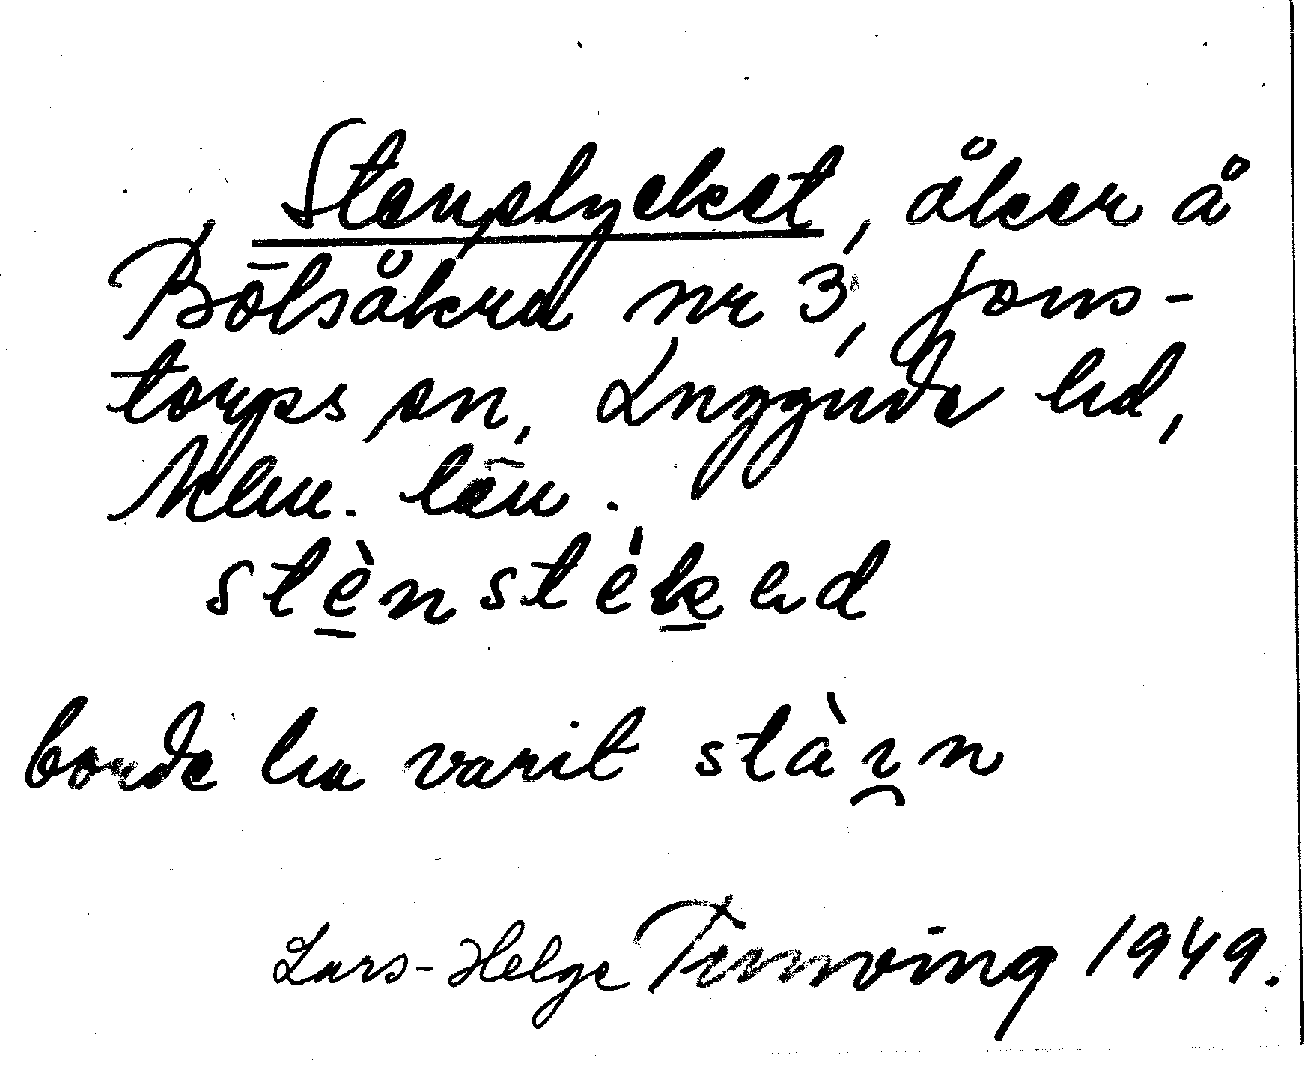 Stenstycket, åker å
Bölsåkra nr 3, Jons-
torps sn, Luggude hd,
Mlm. län.
stènstéked
borde ha varit stàin
Lars-Helge Tunving 1949.